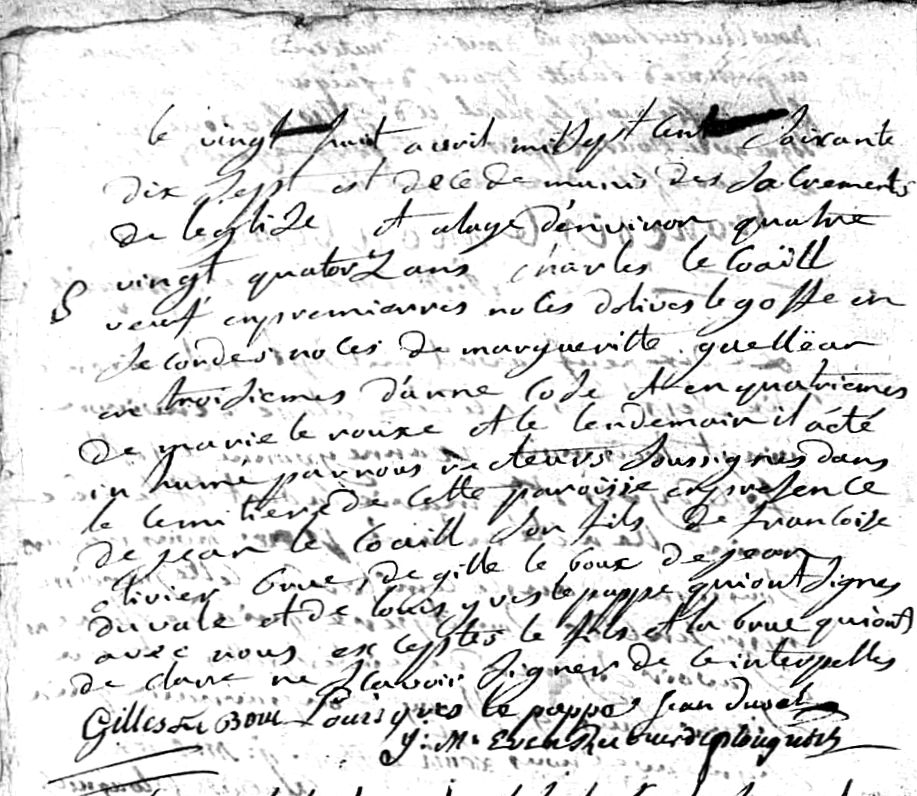 le vingt huit avril mil sept cent soixante
dix sept est decede munis des sacrements
de leglise et alage d'environ quatre
vingt quatorz ans charles le Coaill
S veuf enpremierres noces dolives legoffe en
secondes noces de margueritte quellëar
en troisiemes d'anne Code et en quatriemes
de marie le rouxe et le lendemain il áeté
in humé parnous recteurs soussignes dans
le cemitiere de cette paroisse enpresence
de jean le Coaill son fils de francoise
olivier brue, de gille le boux de jean
duvale et de louis yves le pappe quiont signes
avec nous exceptes le fils et la brue quiont
de clare ne scavoir signer de ce interpelles
Gilles le Bouc Louis yves le pappe jean duval
J: M: Even Recteur de plouguer